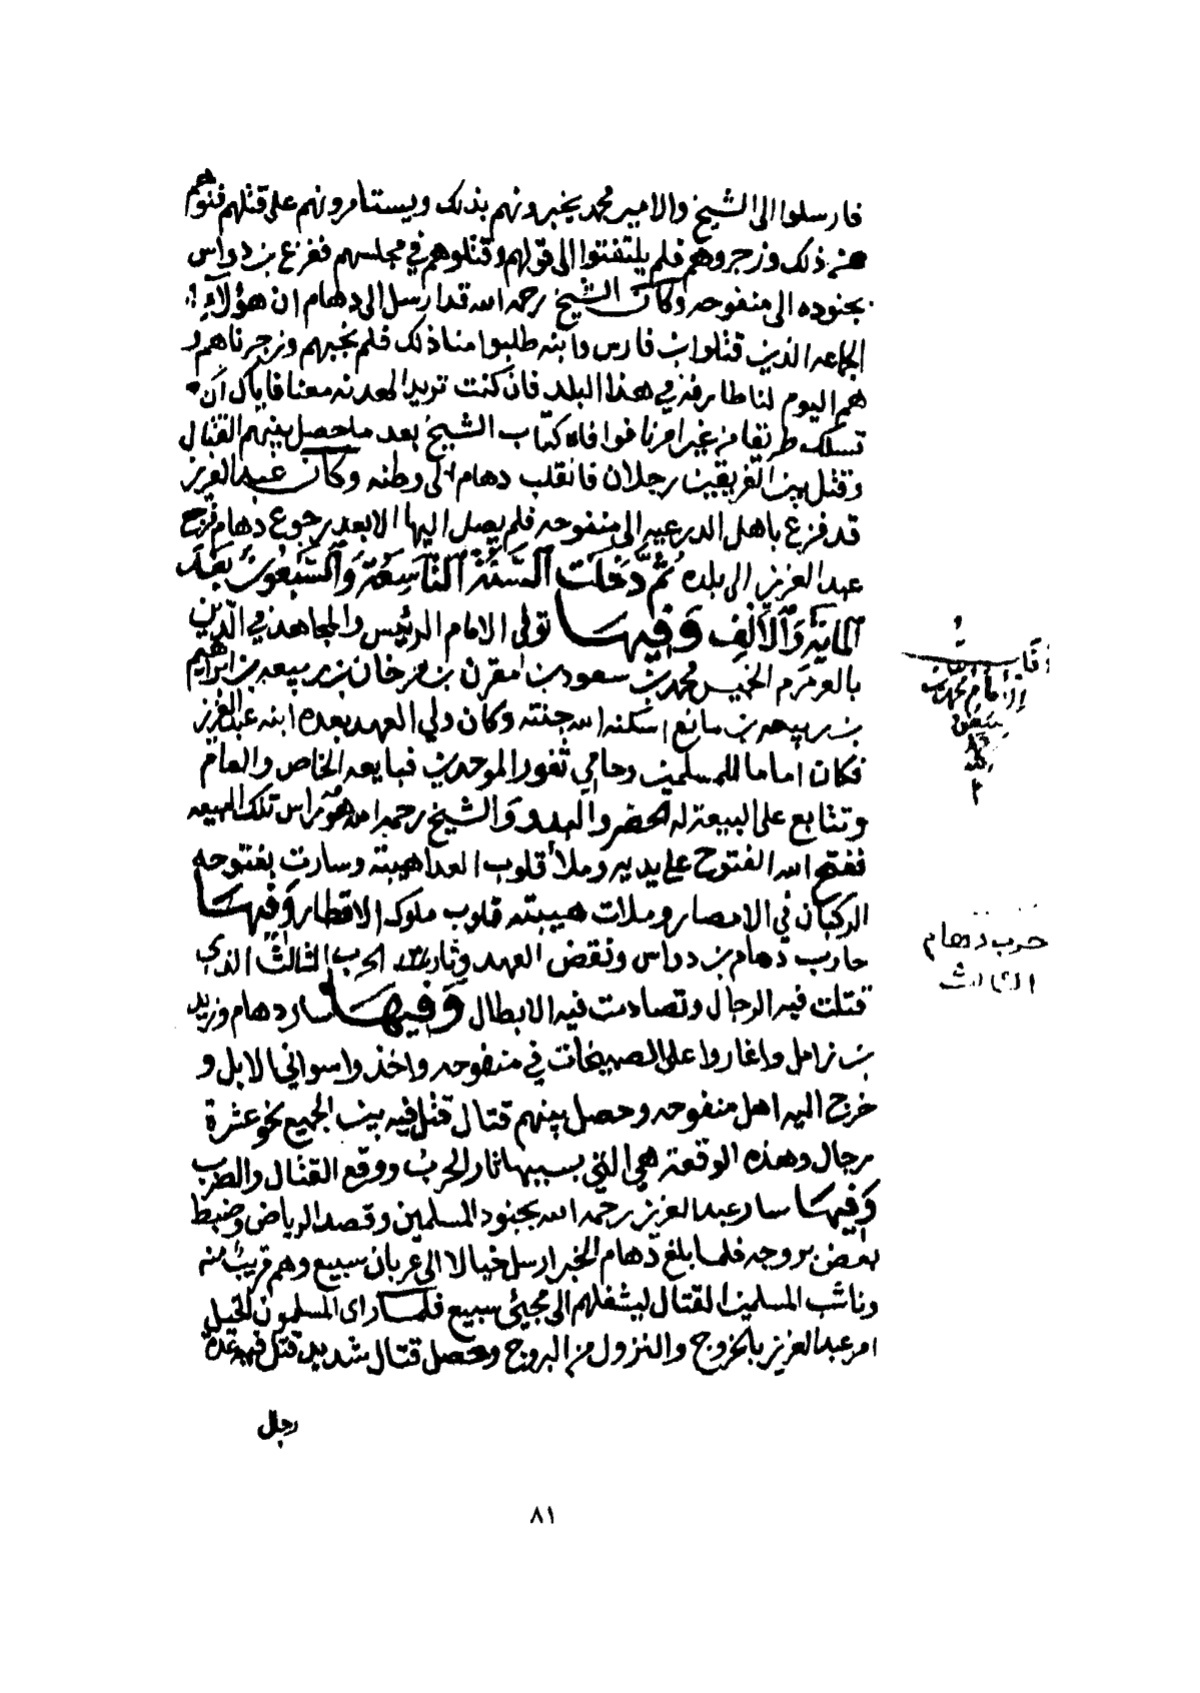 فارسلوا الى الشيخ والامير محمد يخبرونهم بذلك ويستامرونهم على قتلهم فنهوهم
عن ذلك وزجروهم فلم يلتفتوا الى قولهم وقتلوهم في مجلسهم ففزع بن دواس
بجنوده الى منفوحه وكان الشيخ رحمه الله قد ارسل الى دهام ان هؤلاء
الجماعه الذين قتلوا بن فارس وابنه طلبوا منا ذلك فلم نجبهم وزجرناهم و
هم اليوم لنا طارفة في هذا البلد فان كنت تريد الهدنه معنا فاياك ان
تسلك طريقا من غير امرنا فوافاه كتاب الشيخ بعد ما حصل بينهم القتال
وقتل بين الفريقين رجلان فانقلب دهام الى وطنه وكان عبد العزيز
قد فزع باهل الدرعيه الى منفوحه فلم يصل اليها الا بعد رجوع دهام فرجع
عبد العزيز الى بلده ثم دَخَلَت السَّنَة التَّاسِعَة وَالسَّبعُون بَعدَ
المايَة وَالأَلف وَفيهَا تولى الامام الرئيس والمجاهد في الدين
بالعرمرم الخميس محمد بن سعود بن مقرن بن مرخان بن ربيعه بن ابراهيم
بن ربيعه بن مانع اسكنه الله جنته وكان ولي العهد بعده ابنه عبد العزيز
فكان اماما للمسلمين وحامي ثغور الموحدين فبايعه الخاص والعام
وتتابع على البيعة له الحضر والبدو والشيخ رحمه الله هو راس تلك البيعه
ففتح الله الفتوح على يديه وملأ قلوب العدا هيبته وسارت بفتوحه
الركبان في الامصار وملات هيبته قلوب ملوك الاقطار وَفيهَا
حارب دهام بن دواس ونقض العهد وثار الحرب الثالث الذي
قتلت فيه الرجال وتصادمت فيه الابطال وَفيهَا سار دهام وزيد
بن زامل واغاروا على الصبيخات في منفوحه واخذوا سواني الابل و
خرج اليه اهل منفوحه وحصل بينهم قتال قتل فيه بين الجميع نحو عشرة
رجال وهذه الوقعة هي التي بسببها ثار الحرب ووقع القتال والضرب
وَفيهَا سار عبد العزيز رحمه الله بجنود المسلمين وقصد الرياض وضبط
بعض بروجه فلما بلغ دهام الخبر ارسل خيالا الى عربان سبيع وهم قريب منه
وناشب المسلمين القتال ليشغلهم الى مجيئ سبيع فلما راى المسلمون الخيل
امر عبد العزيز بالخروج والنزول من البروج وحصل قتال شديد قتل فيه عدة
رجال
الامام محمد بن
سعود
الله
حرب دهام
الثالث
٨١